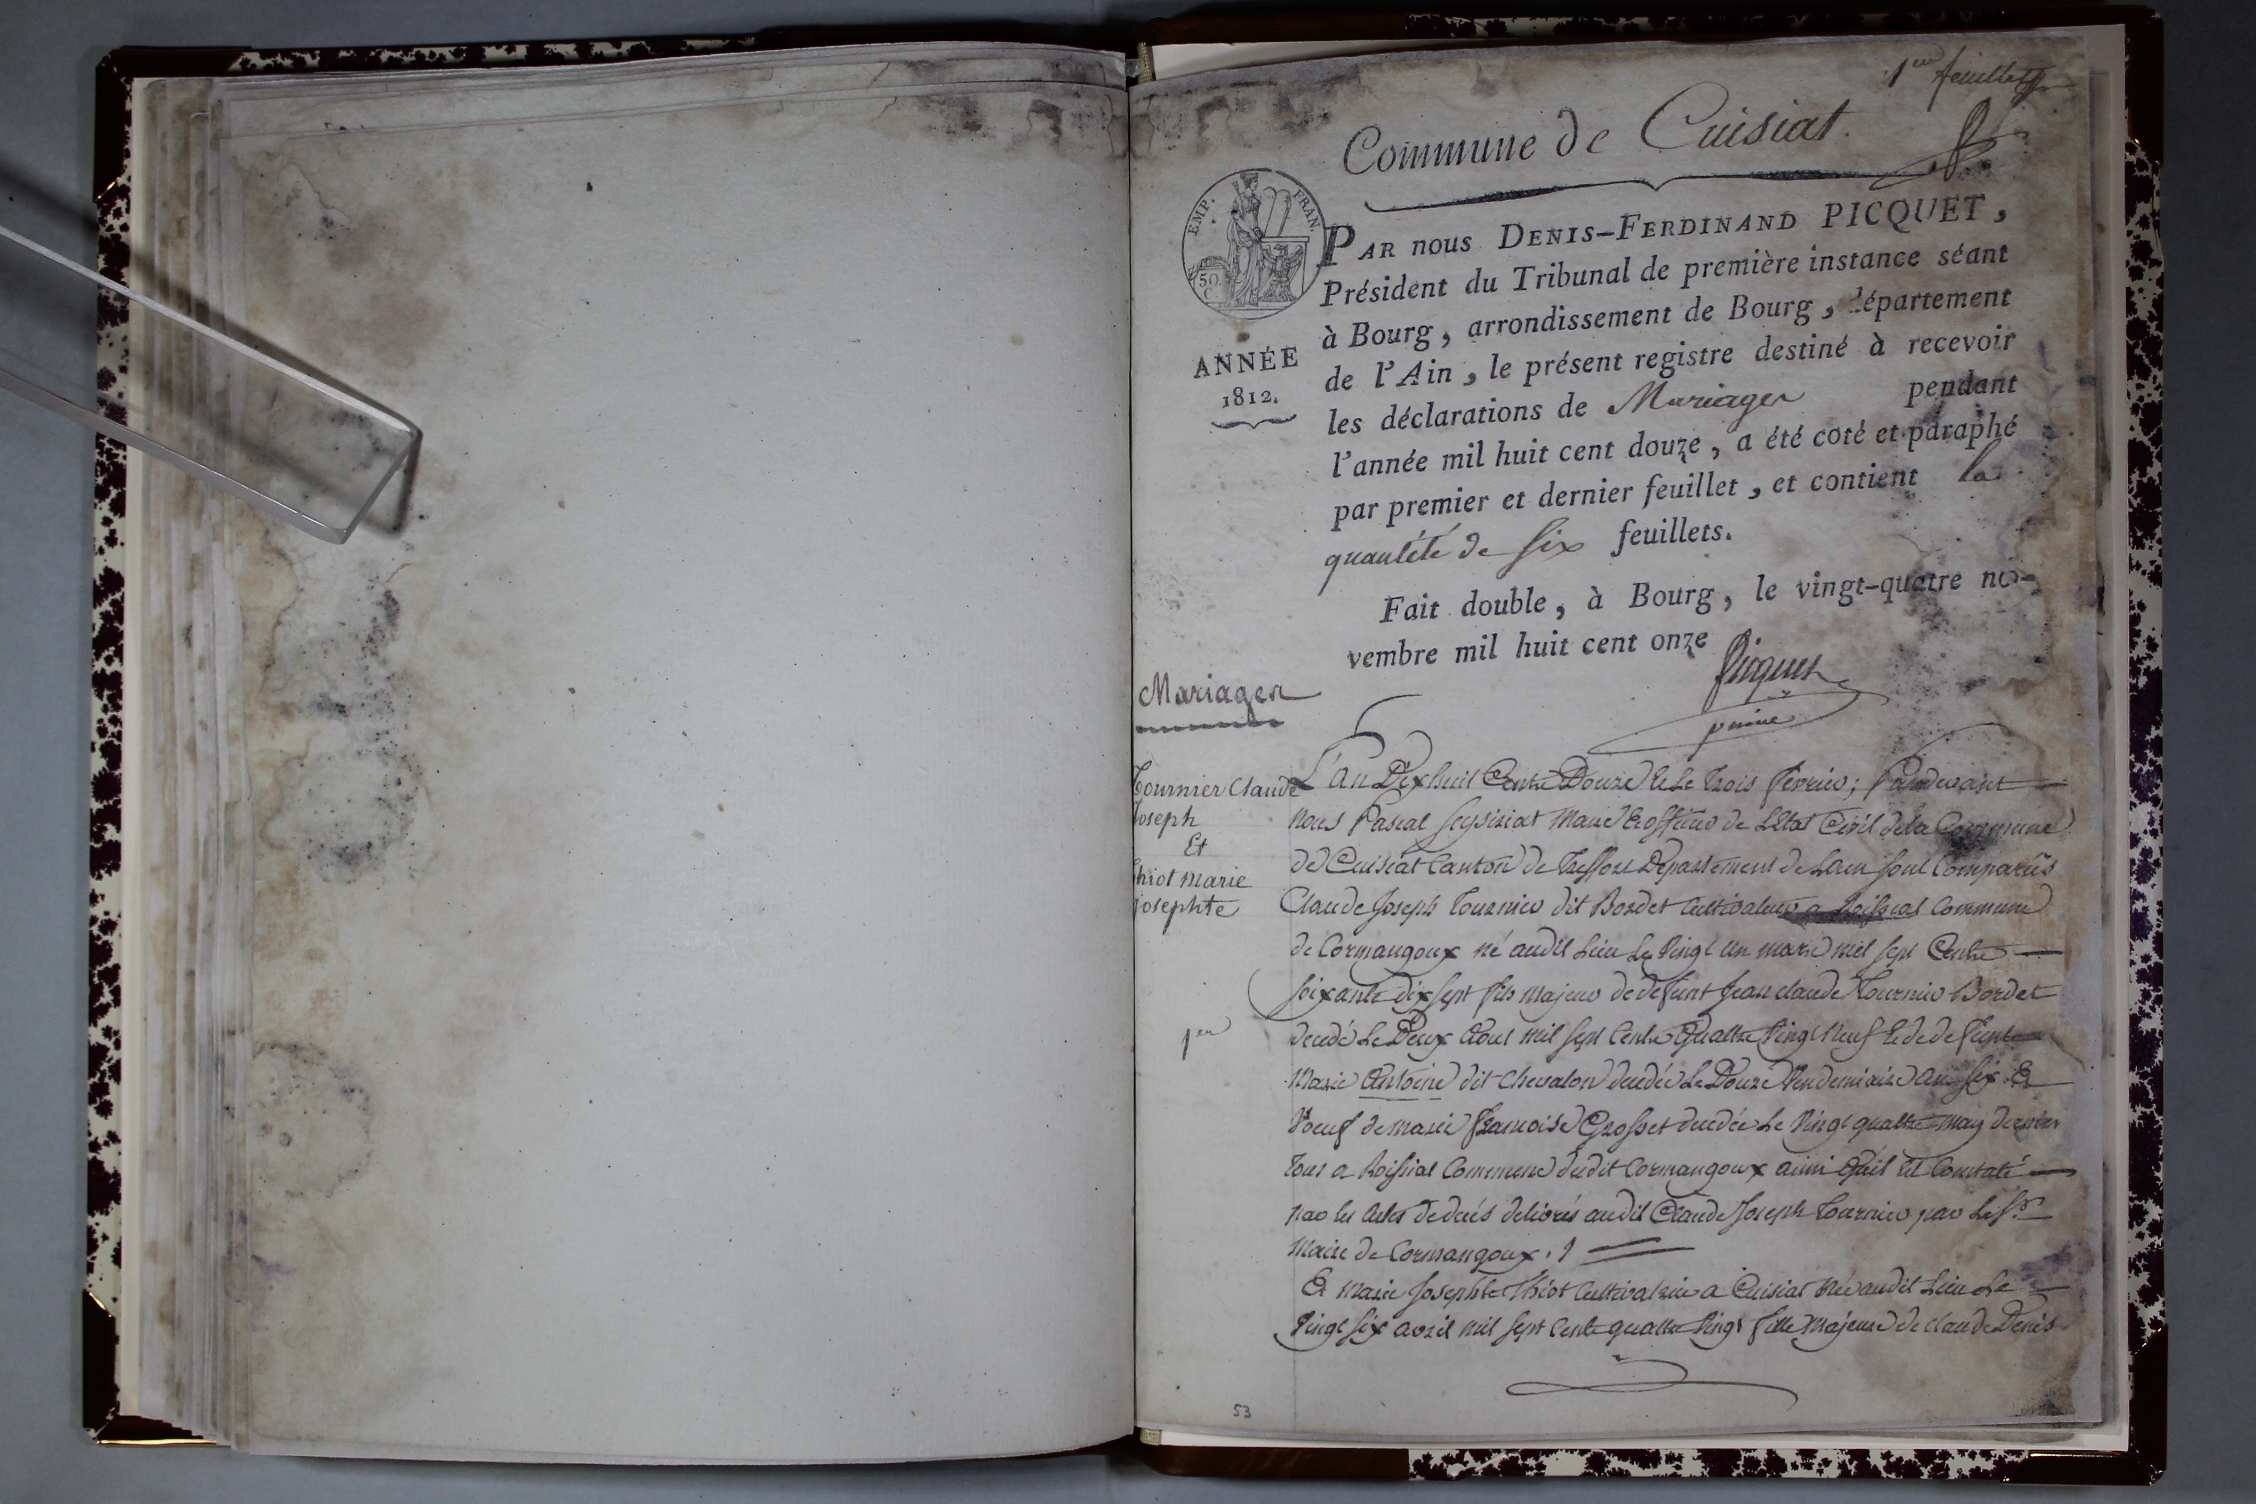 1er feuillet
Commune de Cuisiat.
EMP. FRAN.
50 C
ANNÉE
1812.
PAR nous DENIS-FERDINAND PICQUET,
Président du Tribunal de première instance séant
à Bourg, arrondissement de Bourg, département
de l'Ain, le présent registre destiné à recevoir
les déclarations de Mariages pendant
l'année mil huit cent douze, a été coté et paraphé
par premier et dernier feuillet, et contient la
quantité de six feuillets.
Fait double, à Bourg, le vingt-quatre no-
vembre mil huit cent onze
Picquet
Mariages
Tournier Claude
Joseph
Et
thiot marie
josephte
1er
L'an Dixhuit Cents Douze & Le trois fevrier; Pardevant
nous Pascal Seysiriat Maire & officier de L'Etat Civil de la Commune
de Cuisiat Canton de Treffort Département de L'ain sont Comparus
Claude Joseph Tournier dit Bordet Cultivateur a Roissiat Commune
de Cormangoux né audit Lieu Le vingt un mars mil sept Cents
soixante dix sept fils majeur de defunt Jean claude Tournier Bordet
decedé Le Deux Aout mil sept Cents Quattre vingt Neuf & de defunte
Marie Antoine dit Chevalon decedée Le Douze Vendemiaire an six &
Voeuf de marie françoise Grosset decedée Le vingt quattre may dernier
tous a Roissiat Commune dudit Cormangoux ainsi Quil est Constaté
par les Actes de decés delivrés audit Claude Joseph Tournier par Le Sr
Maire de Cormangoux.
& Marie Josephte Thiot Cultivatrice a Cuisiat née audit Lieu Le
vingt six avril mil sept Cents quattre vingt fille Majeure de claude Denis
53